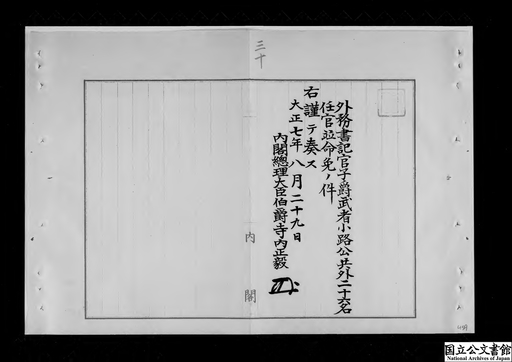 外務書記官子爵武者小路公共外二十六名
任官並命免ノ件
右謹テ奏ス
大正七年八月二十九日
内閣總理大臣伯爵寺内正毅
三十
内閣
国立公文書館
National Archives of Japan